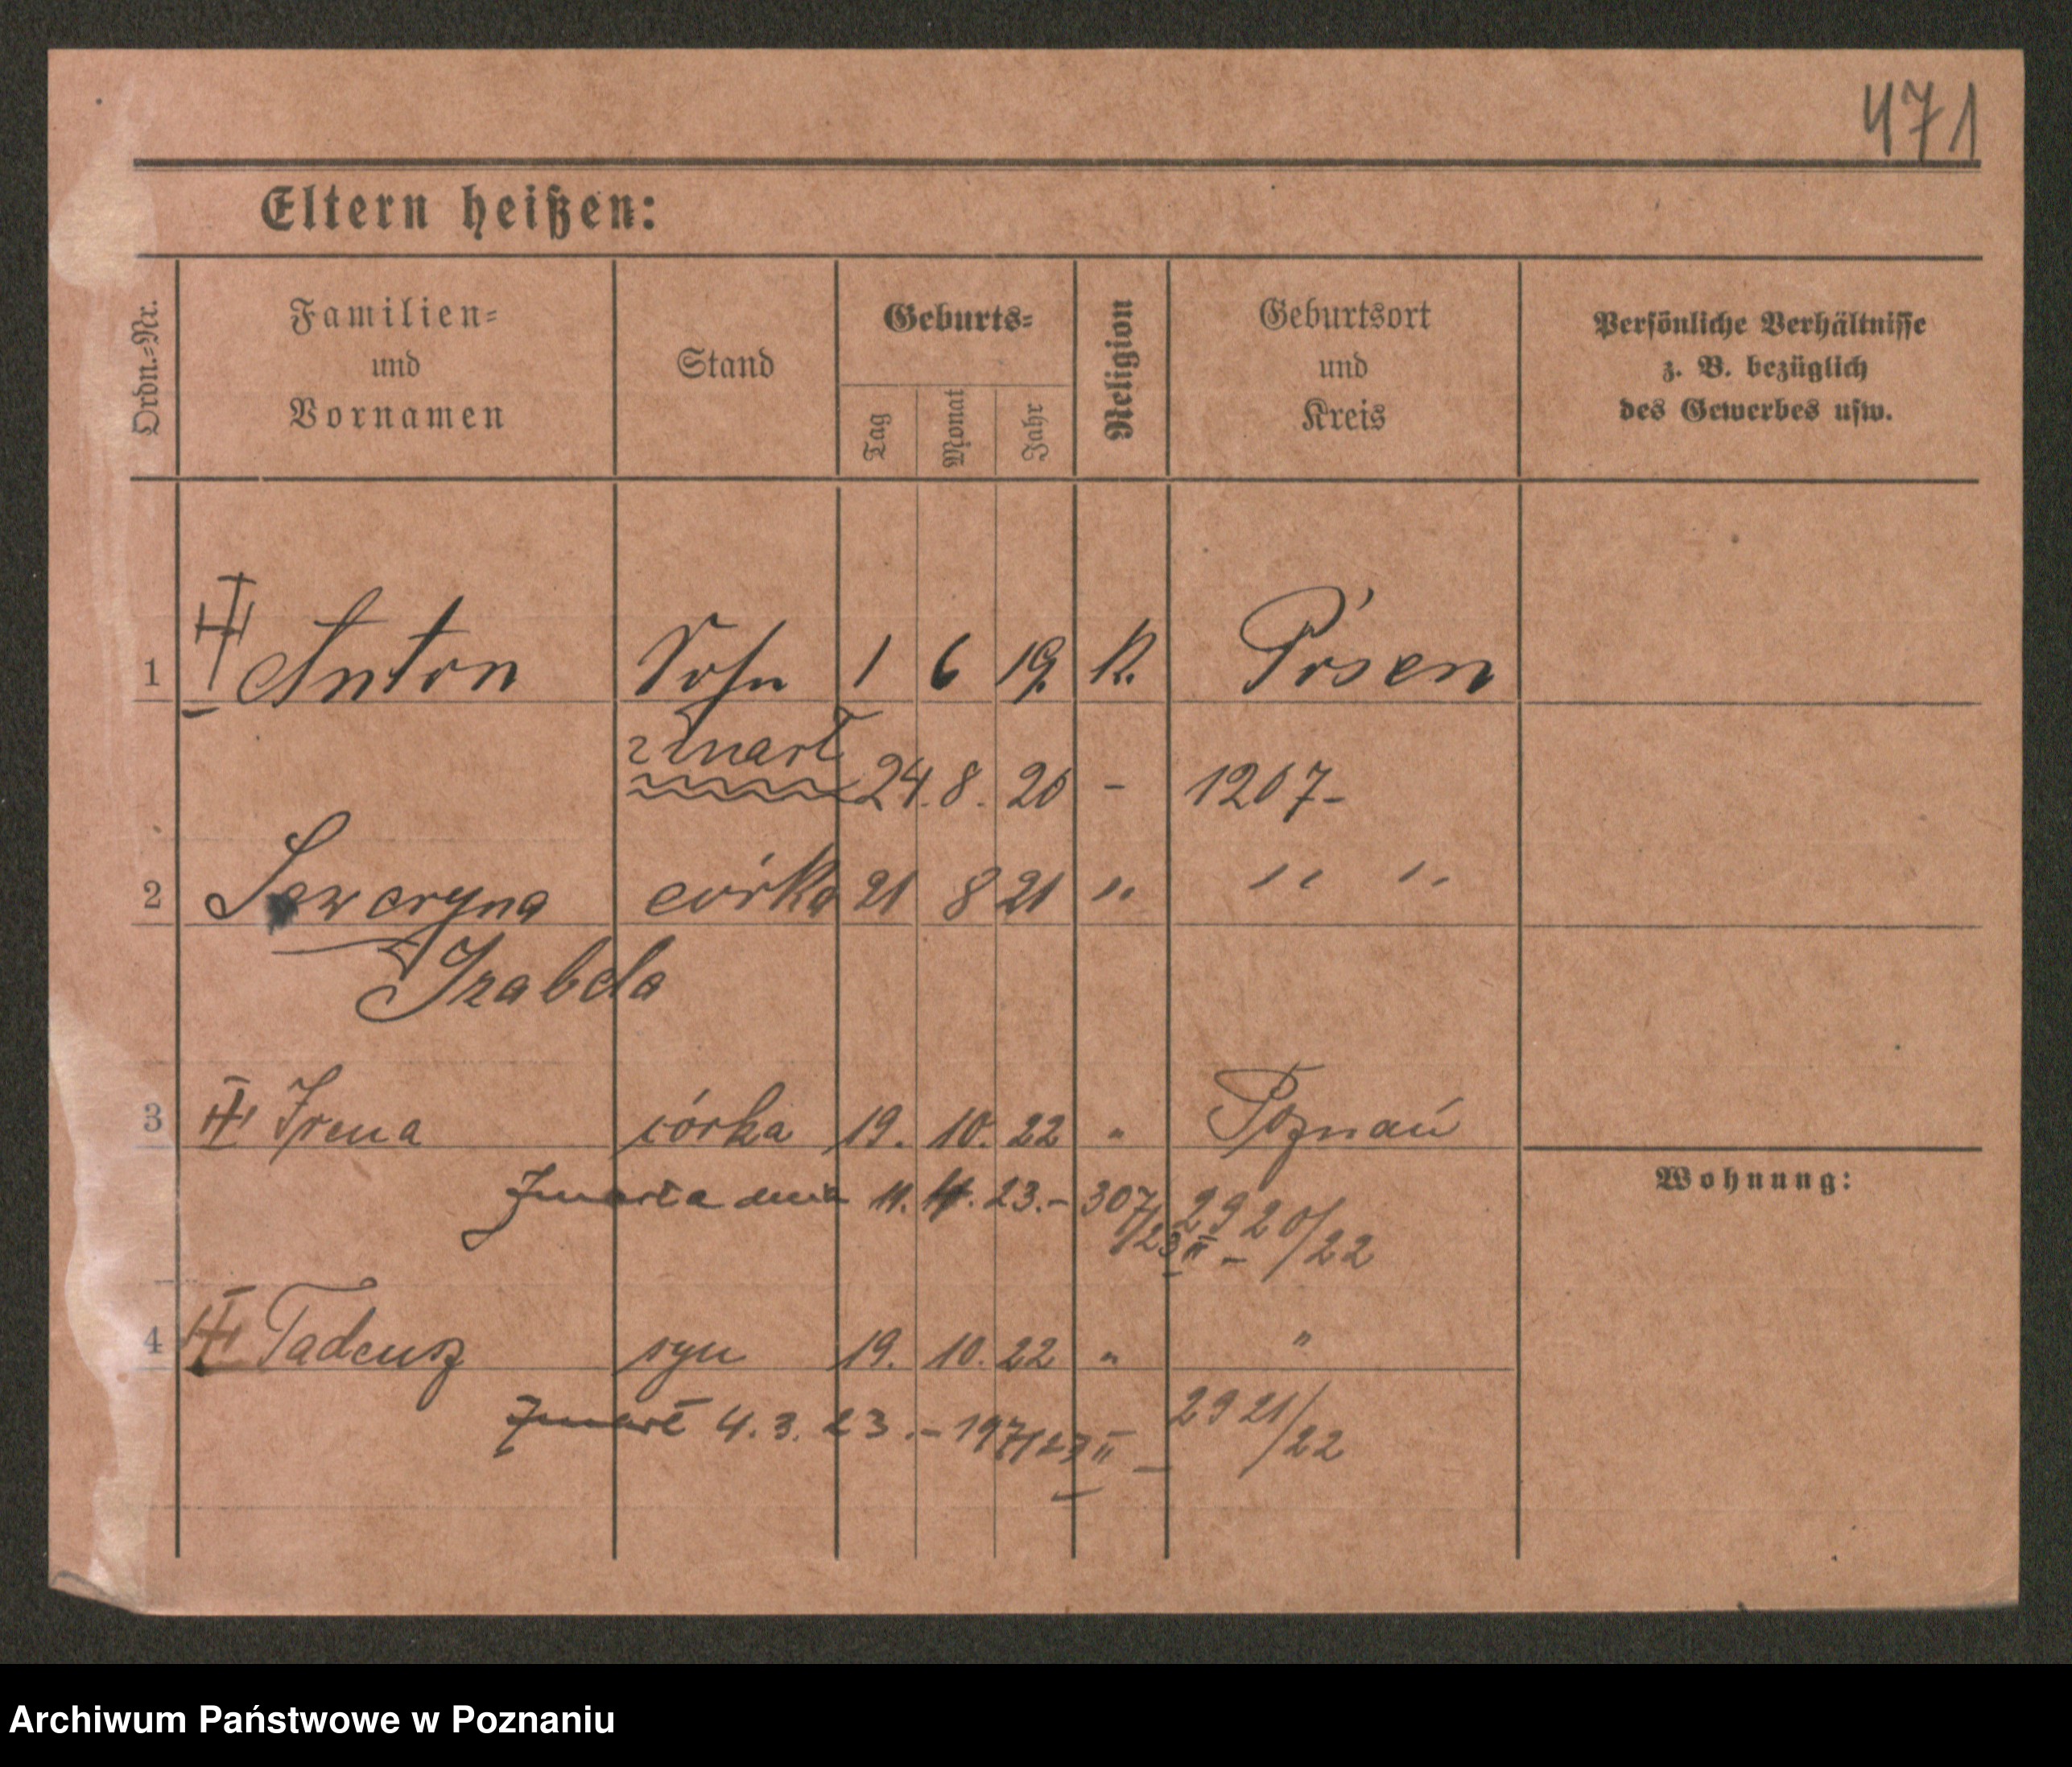 471
Eltern heißen:
Ordn.=Nr. Familien= und Vornamen Stand Geburts= Tag Monat Jahr Religion Geburtsort und Kreis Persönliche Verhältnisse z. B. bezüglich des Gewerbes usw.
1 Anton Sohn 1 6 19. K. Posen
zmarł 24. 8. 20 - 1207-
2 Seweryna córka 21 8 21 " " "
Izabela
3 Irena córka 19. 10. 22 " Poznań
Wohnung:
Zmarła dnia 11. 4. 23. - 307/23 II - 2920/22
4 Tadeusz syn 19. 10. 22 " "
Zmarł 4. 3. 23. - 197/23 II - 2921/22
Archiwum Państwowe w Poznaniu